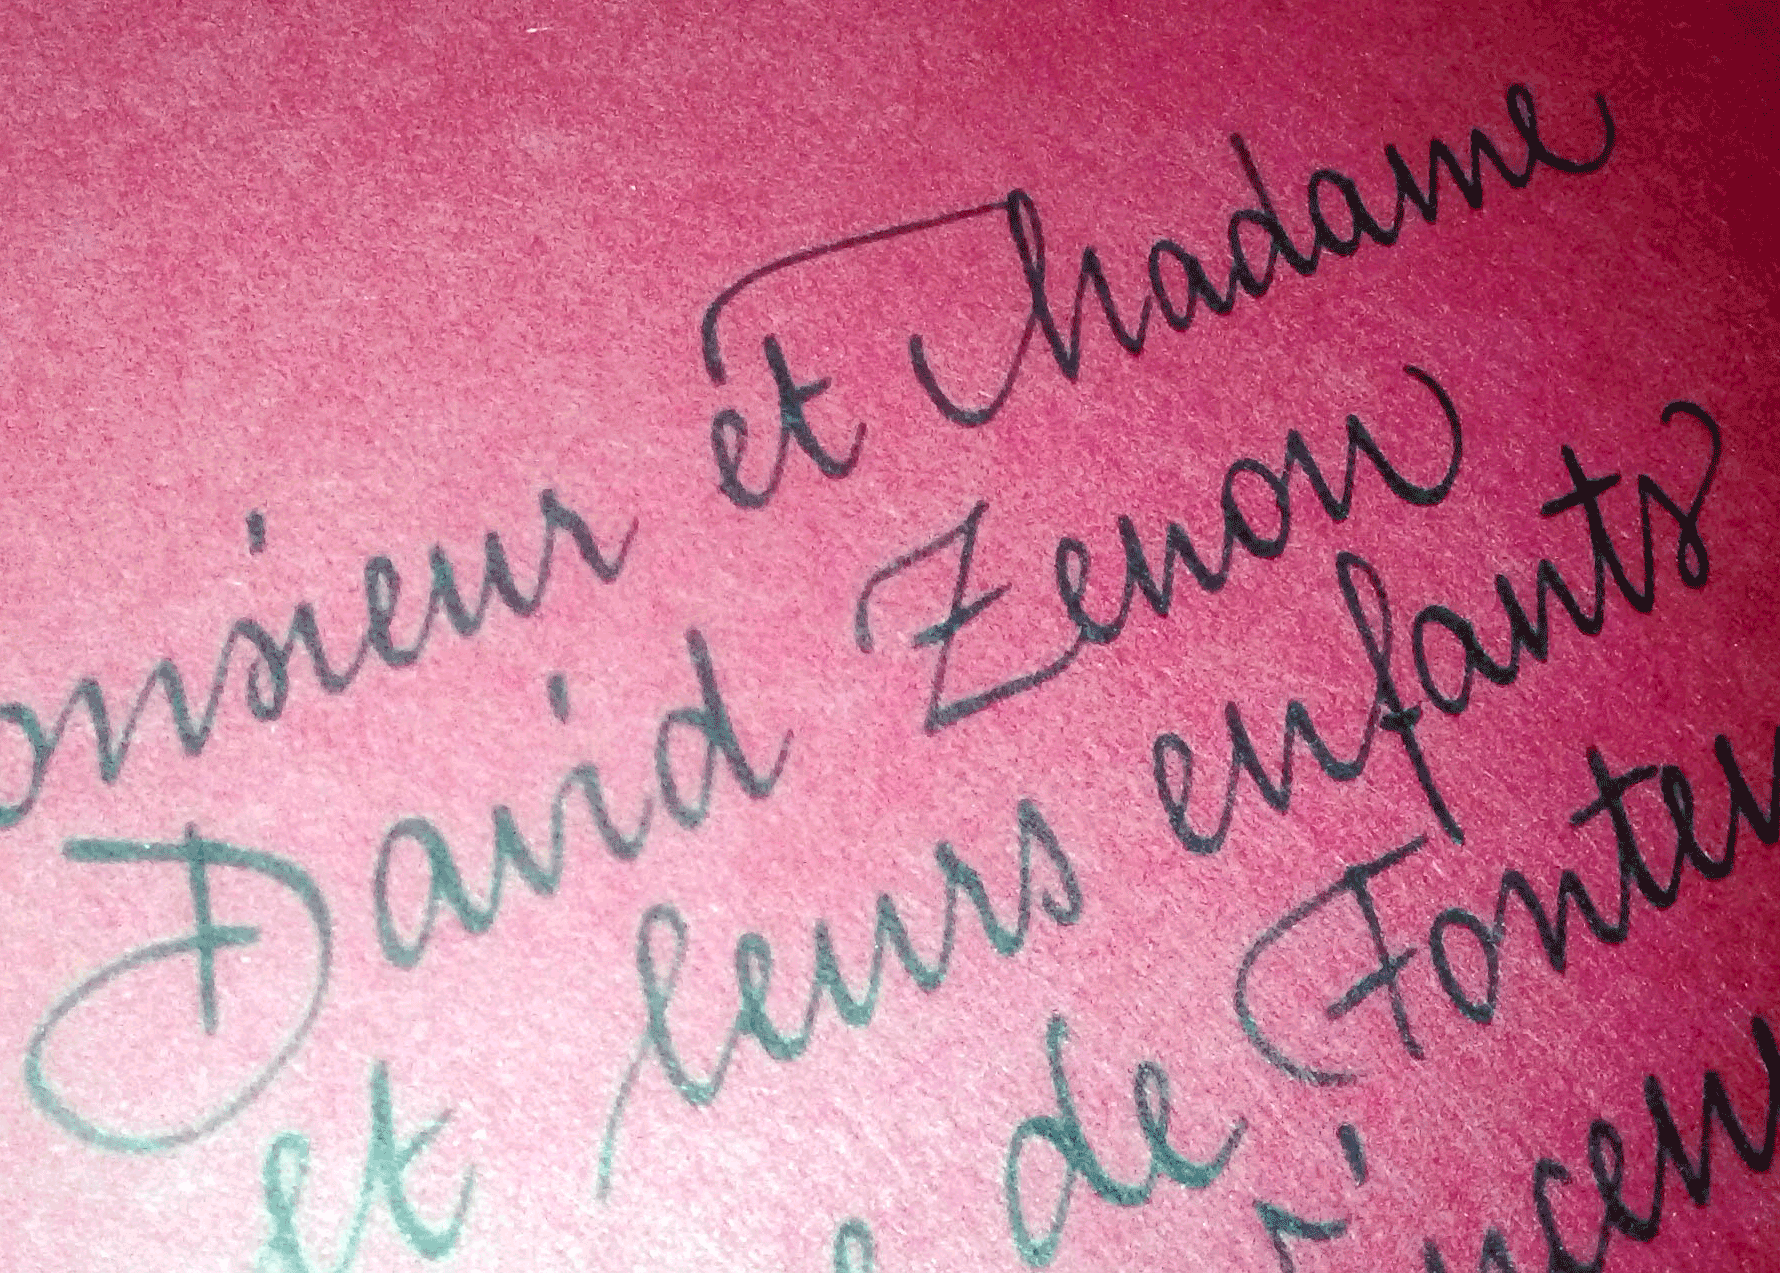 onsieur et Madame
David Zenon
et leurs enfants
de Fonten